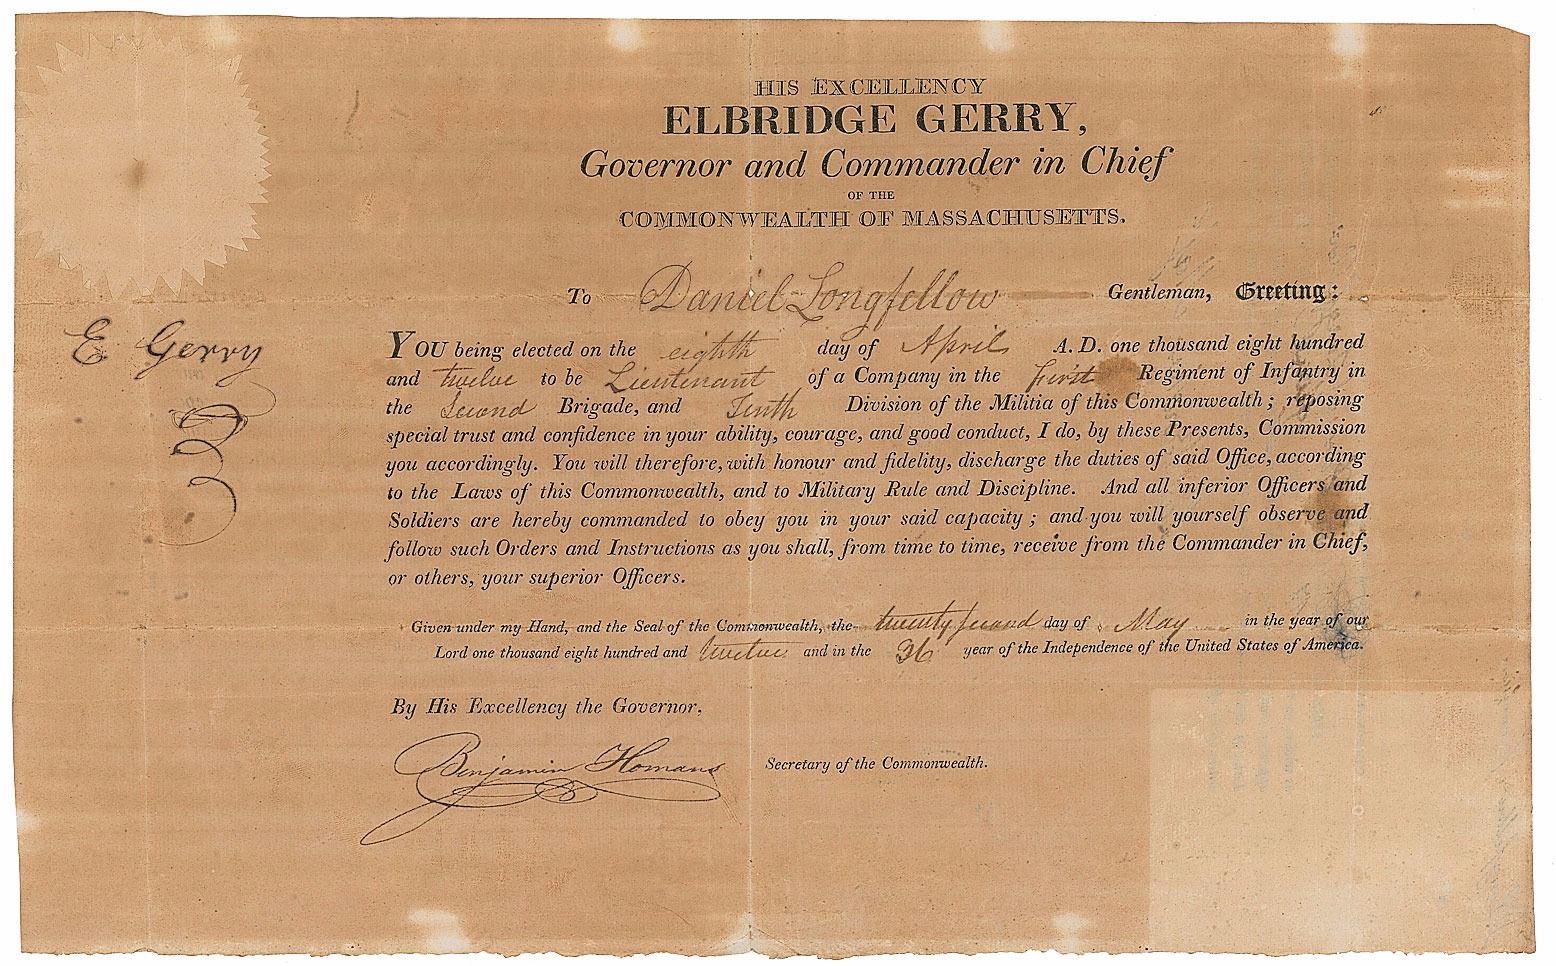 HIS EXCELLENCY
ELBRIDGE GERRY,
Governor and Commander in Chief
OF THE
COMMONWEALTH OF MASSACHUSETTS.
To Daniel Longfellow Gentleman, Greeting:
E Gerry
YOU being elected on the eighth day of April A. D. one thousand eight hundred
and twelve to be Lieutenant of a Company in the first Regiment of Infantry in
the Second Brigade, and Tenth Division of the Militia of this Commonwealth; reposing
special trust and confidence in your ability, courage, and good conduct, I do, by these Presents, Commission
you accordingly. You will therefore, with honour and fidelity, discharge the duties of said Office, according
to the Laws of this Commonwealth, and to Military Rule and Discipline. And all inferior Officers and
Soldiers are hereby commanded to obey you in your said capacity; and you will yourself observe and
follow such Orders and Instructions as you shall, from time to time, receive from the Commander in Chief,
or others, your superior Officers.
Given under my Hand, and the Seal of the Commonwealth, the twenty second day of May in the year of our
Lord one thousand eight hundred and twelve and in the 36 year of the Independence of the United States of America.
By His Excellency the Governor,
Benjamin Homans Secretary of the Commonwealth.